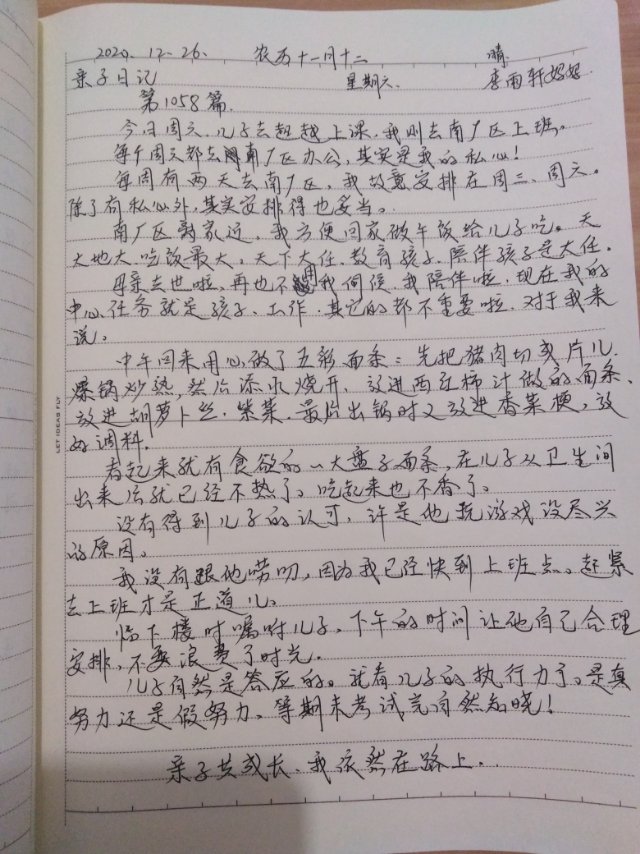 2020. 12. 26. 农历十一月十二 晴
亲子日记 星期六 李雨轩妈妈
第1058篇
今日周六,儿子去超越上课,我则去南厂区上班。
每个周六都去南厂区办公,其实是我的私心!
每周有两天去南厂区,我故意安排在周三、周六。
除了有私心外,其实安排得也妥当。
南厂区离家近,我方便回家做午饭给儿子吃。天
大地大,吃饭最大,天下大任,教育孩子,陪伴孩子是大任。
母亲去世啦,再也不用我伺候,我陪伴啦,现在我的
中心任务就是孩子,工作,其它的都不重要啦,对于我来
说。
中午回来用心做了五彩面条:先把猪肉切成片儿,
爆锅炒熟,然后添水烧开,放进西红柿汁做的面条,
放进胡萝卜丝,紫菜,最后出锅时又放进香菜梗,放
好调料。
看起来就有食欲的一大盘子面条,在儿子从卫生间
出来后就已经不热了。吃起来也不香了。
没有得到儿子的认可,许是他玩游戏没尽兴
的原因。
我没有跟他唠叨,因为我已经快到上班点。赶紧
去上班才是正道儿。
临下楼时嘱咐儿子,下午的时间让他自己合理
安排,不要浪费了时光。
儿子自然是答应的。就看儿子的执行力了。是真
努力还是假努力,等期末考试完自然知晓!
亲子共成长,我依然在路上.
LET IDEAS FLY